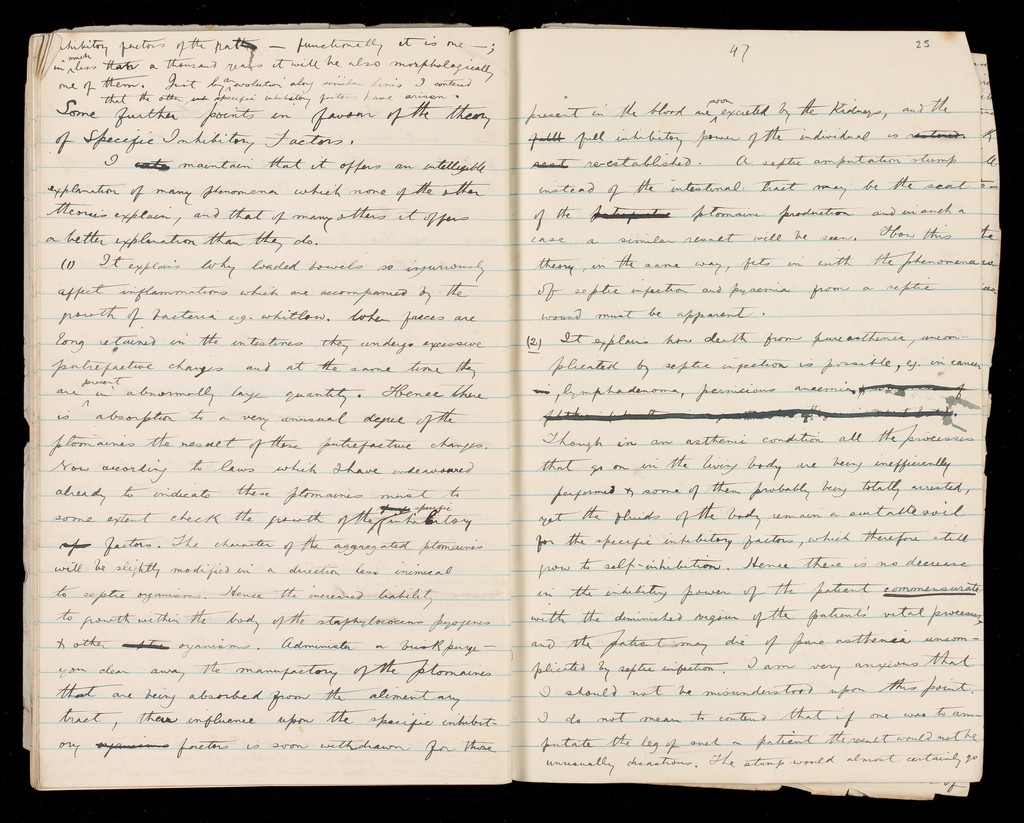 inhibitory factors of the path — functionally it is one —;
in much less than a thousand years it will be also morphologically
one of them. Just by an evolution along similar lines I contend
that the other specific inhibitory factors have arisen.
Some further points in favour of the theory
of Specific Inhibitory Factors.
I maintain that it offers an intelligible
explanation of many phenomena which none of the other
theories explain, and that of many others it offers
a better explanation than they do.
(1) It explains why loaded bowels so injuriously
affect inflammations which are accompanied by the
growth of bacteria e.g. whitlow. When faeces are
long retained in the intestines they undergo excessive
putrefactive changes and at the same time they
are present in abnormally large quantity. Hence there
is absorption to a very unusual degree of the
ptomaines the result of these putrefactive changes.
Now according to laws which I have endeavoured
already to indicate these ptomaines must to
some extent check the growth of the specific inhibitory
factors. The character of the aggregated ptomaines
will be slightly modified in a direction less inimical
to septic organisms. Hence the increased liability
to growth within the body of the staphylococcus pyogenes
& other organisms. Administer a brisk purge —
you clear away the manufactory of the ptomaines
that are being absorbed from the alimentary
tract, their influence upon the specific inhibit-
ory factors is soon withdrawn for those
47
25
present in the blood are soon excreted by the Kidneys, and the
full inhibitory power of the individual is
re-established. A septic amputation stump
instead of the intestinal tract may be the seat
of the ptomaine production and in such a
case a similar result will be seen. How this
theory, in the same way, fits in with the phenomena
of septic infection and pyaemia from a septic
wound must be apparent.
(2) It explains how death from pure asthenia, uncom-
plicated by septic infection is possible, e.g. in cancer
, lymphadenoma, pernicious anaemia
Though in an asthenic condition all the processes
that go on in the living body are being inefficiently
performed & some of them probably being totally arrested,
yet the fluids of the body remain a suitable soil
for the specific inhibitory factors, which therefore still
grow to self-inhibition. Hence there is no decrease
in the inhibitory power of the patient commensurate
with the diminished vigour of the patients' vital processes,
and the patient may die of pure asthenia uncom-
plicated by septic infection. I am very anxious that
I should not be misunderstood upon this point.
I do not mean to contend that if one was to am-
putate the leg of such a patient the result would not be
unusually disastrous. The stump would almost certainly go